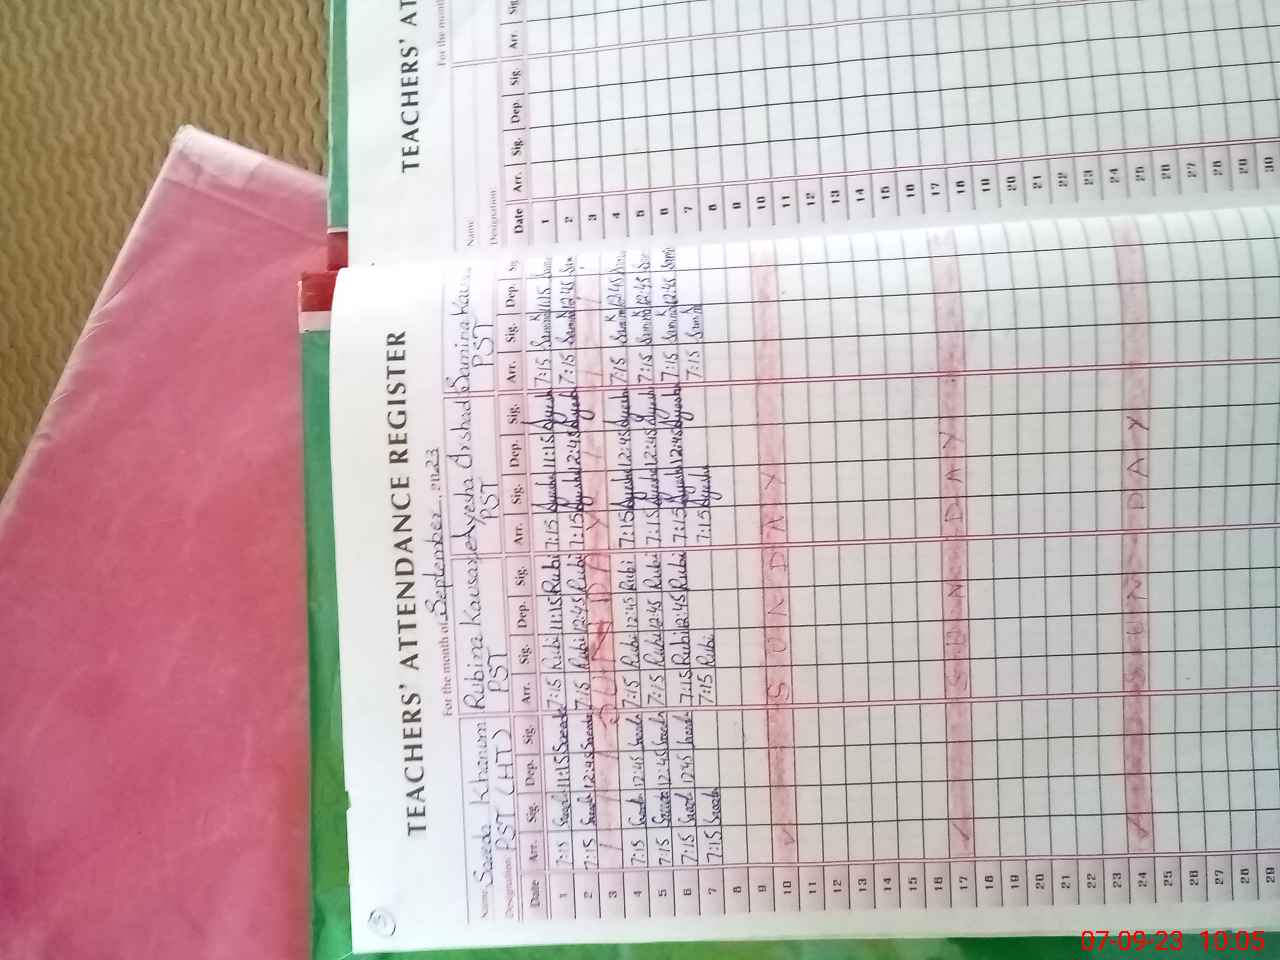 5
TEACHERS' ATTENDANCE REGISTER
For the month of September, 2023
Name Saeeda Khanum Rubina Kausar Ayesha Arshad Samina Kausar
Designation PST (HT) PST PST PST
Date Arr. Sig. Dep. Sig. Arr. Sig. Dep. Sig. Arr. Sig. Dep. Sig. Arr. Sig. Dep. Sig.
1 7:15 Saeeda 11:15 Saeeda 7:15 Rubi 11:15 Rubi 7:15 Ayesha 11:15 Ayesha 7:15 Samina K 11:15
2 7:15 Saeeda 12:45 Saeeda 7:15 Rubi 12:45 Rubi 7:15 Ayesha 12:45 Ayesha 7:15 Samina K 12:45
3 SUNDAY
4 7:15 Saeeda 12:45 Saeeda 7:15 Rubi 12:45 Rubi 7:15 Ayesha 12:45 Ayesha 7:15 Samina K 12:45
5 7:15 Saeeda 12:45 Saeeda 7:15 Rubi 12:45 Rubi 7:15 Ayesha 12:45 Ayesha 7:15 Samina K 12:45
6 7:15 Saeeda 12:45 Saeeda 7:15 Rubi 12:45 Rubi 7:15 Ayesha 12:45 Ayesha 7:15 Samina K 12:45
7 7:15 Saeeda 7:15 Rubi 7:15 Ayesha 7:15 Samina
8
9
10 SUNDAY
11
12
13
14
15
16
17 SUNDAY
18
19
20
21
22
23
24 SUNDAY
25
26
27
28
29
TEACHERS' AT
For the month
Name
Designation:
Date Arr. Sig. Dep. Sig. Arr. Sig.
1
2
3
4
5
6
7
8
9
10
11
12
13
14
15
16
17
18
19
20
21
22
23
24
25
26
27
28
29
30
07-09-23 10.05